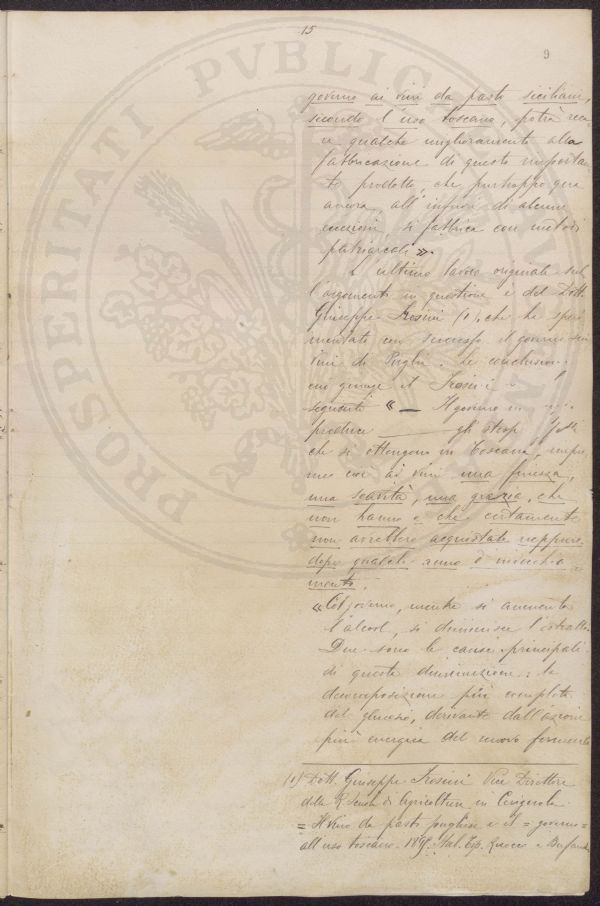 15
9
PROSPERITATI PVBLICAE
governo ai vini da pasto siciliani,
secondo l'uso toscano, potrà reca
re qualche miglioramento alla
fabbricazione di questo importan
te prodotto, che purtroppo qua
ancora, all'infuori di alcune
eccezioni, si fabbrica con metodi
patriarcali ».
L'ultimo lavoro originale sul
l'argomento in questione è del Dott.
Giuseppe Frosini (1), che ha speri
mentato con successo il governo sui
vini di Puglia. Le conclusioni
cui giunge il Frosini
seguenti « — Il governo in
produce gli stessi
che si ottengono in Toscana, impri
me cioè ai vini una finezza,
una soavità, una grazia, che
non hanno e che certamente
non avrebbero acquistate neppure
dopo qualche anno d'invecchia
mento.
« Col governo, mentre si aumenta
l'alcool, si diminuisce l'estratto.
Due sono le cause principali
di questa diminuzione: la
decomposizione più completa
del glucosio, derivante dall'azione
più energica del nuovo fermento
(1) Dott. Giuseppe Frosini Vice Direttore
della R. Scuola di Agricoltura in Cerignola
= Il vino da pasto pugliese e il = governo =
all'uso toscano. Tip.